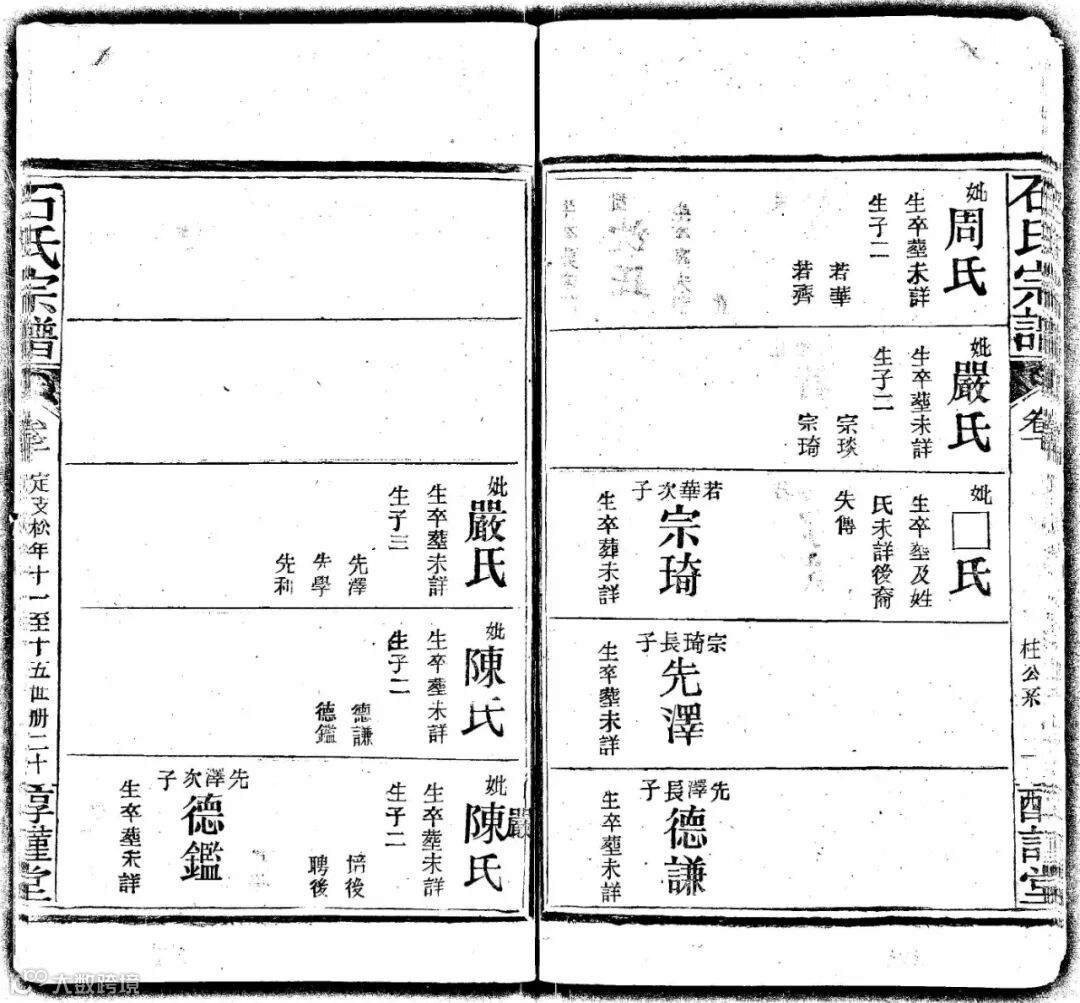 石氏宗譜
卷
柱公系
妣
周氏
生卒塟未詳
生子二
若華
若齊
妣
嚴氏
生卒塟未詳
生子二
宗琰
宗琦
妣
□氏
生卒塟及姓
氏未詳後裔
失傳
若華次子
宗琦
生卒葬未詳
宗琦長子
先澤
生卒塟未詳
先澤長子
德謙
生卒塟未詳
妣
嚴氏
生卒塟未詳
生子三
先澤
先學
先利
妣
陳氏
生卒塟未詳
生子二
德謙
德鑑
妣
陳氏
生卒塟未詳
生子二
培後
聘後
先澤次子
德鑑
生卒塟未詳
石氏宗譜
定支松年十一至十五世册二十
大数跨境